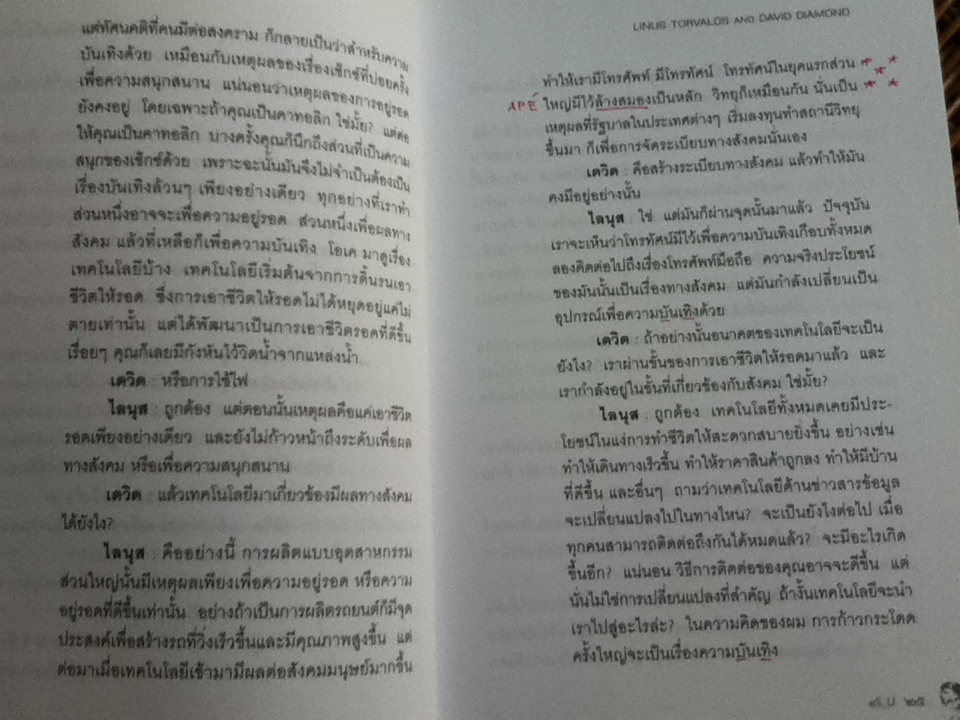 แต่ทัศนคติที่คนมีต่อสงคราม ก็กลายเป็นว่าสำหรับความ
บันเทิงด้วย เหมือนกับเหตุผลของเรื่องเซ็กซ์ที่บ่อยครั้ง
เพื่อความสนุกสนาน แน่นอนว่าเหตุผลของการอยู่รอด
ยังคงอยู่ โดยเฉพาะถ้าคุณเป็นคาทอลิก ใช่มั้ย? แต่ต่อ
ให้คุณเป็นคาทอลิก บางครั้งคุณก็นึกถึงส่วนที่เป็นความ
สนุกของเซ็กซ์ด้วย เพราะฉะนั้นมันจึงไม่จำเป็นต้องเป็น
เรื่องบันเทิงล้วนๆ เพียงอย่างเดียว ทุกอย่างที่เราทำ
ส่วนหนึ่งอาจจะเพื่อความอยู่รอด ส่วนหนึ่งเพื่อผลทาง
สังคม แล้วที่เหลือก็เพื่อความบันเทิง โอเค มาดูเรื่อง
เทคโนโลยีบ้าง เทคโนโลยีเริ่มต้นจากการดิ้นรนเอา
ชีวิตให้รอด ซึ่งการเอาชีวิตให้รอดไม่ได้หยุดอยู่แค่ไม่
ตายเท่านั้น แต่ได้พัฒนาเป็นการเอาชีวิตรอดที่ดีขึ้น
เรื่อยๆ คุณก็เลยมีกังหันไว้วิดน้ำจากแหล่งน้ำ
เดวิด : หรือการใช้ไฟ
ไลนุส : ถูกต้อง แต่ตอนนั้นเหตุผลคือแค่เอาชีวิต
รอดเพียงอย่างเดียว และยังไม่ก้าวหน้าถึงระดับเพื่อผล
ทางสังคม หรือเพื่อความสนุกสนาน
เดวิด : แล้วเทคโนโลยีมาเกี่ยวข้องมีผลทางสังคม
ได้ยังไง?
ไลนุส : คืออย่างนี้ การผลิตแบบอุตสาหกรรม
ส่วนใหญ่นั้นมีเหตุผลเพียงเพื่อความอยู่รอด หรือความ
อยู่รอดที่ดีขึ้นเท่านั้น อย่างถ้าเป็นการผลิตรถยนต์ก็มีจุด
ประสงค์เพื่อสร้างรถที่วิ่งเร็วขึ้นและมีคุณภาพสูงขึ้น แต่
ต่อมาเมื่อเทคโนโลยีเข้ามามีผลต่อสังคมมนุษย์มากขึ้น
LINUS TORVALDS AND DAVID DIAMOND
ทำให้เรามีโทรศัพท์ มีโทรทัศน์ โทรทัศน์ในยุคแรกส่วน
APE ใหญ่มีไว้ล้างสมองเป็นหลัก วิทยุก็เหมือนกัน นั่นเป็น
เหตุผลที่รัฐบาลในประเทศต่างๆ เริ่มลงทุนทำสถานีวิทยุ
ขึ้นมา ก็เพื่อการจัดระเบียบทางสังคมนั่นเอง
เดวิด : คือสร้างระเบียบทางสังคม แล้วทำให้มัน
คงมีอยู่อย่างนั้น
ไลนุส : ใช่ แต่มันก็ผ่านจุดนั้นมาแล้ว ปัจจุบัน
เราจะเห็นว่าโทรทัศน์มีไว้เพื่อความบันเทิงเกือบทั้งหมด
ลองคิดต่อไปถึงเรื่องโทรศัพท์มือถือ ความจริงประโยชน์
ของมันนั้นเป็นเรื่องทางสังคม แต่มันกำลังเปลี่ยนเป็น
อุปกรณ์เพื่อความบันเทิงด้วย
เดวิด : ถ้าอย่างนั้นอนาคตของเทคโนโลยีจะเป็น
ยังไง? เราผ่านขั้นของการเอาชีวิตให้รอดมาแล้ว และ
เรากำลังอยู่ในขั้นที่เกี่ยวข้องกับสังคม ใช่มั้ย?
ไลนุส : ถูกต้อง เทคโนโลยีทั้งหมดเคยมีประ-
โยชน์ในแง่การทำชีวิตให้สะดวกสบายยิ่งขึ้น อย่างเช่น
ทำให้เดินทางเร็วขึ้น ทำให้ราคาสินค้าถูกลง ทำให้มีบ้าน
ที่ดีขึ้น และอื่นๆ ถามว่าเทคโนโลยีด้านข่าวสารข้อมูล
จะเปลี่ยนแปลงไปในทางไหน? จะเป็นยังไงต่อไป เมื่อ
ทุกคนสามารถติดต่อถึงกันได้หมดแล้ว? จะมีอะไรเกิด
ขึ้นอีก? แน่นอน วิธีการติดต่อของคุณอาจจะดีขึ้น แต่
นั่นไม่ใช่การเปลี่ยนแปลงที่สำคัญ ถ้างั้นเทคโนโลยีจะนำ
เราไปสู่อะไรล่ะ? ในความคิดของผม การก้าวกระโดด
ครั้งใหญ่จะเป็นเรื่องความบันเทิง
๒๕